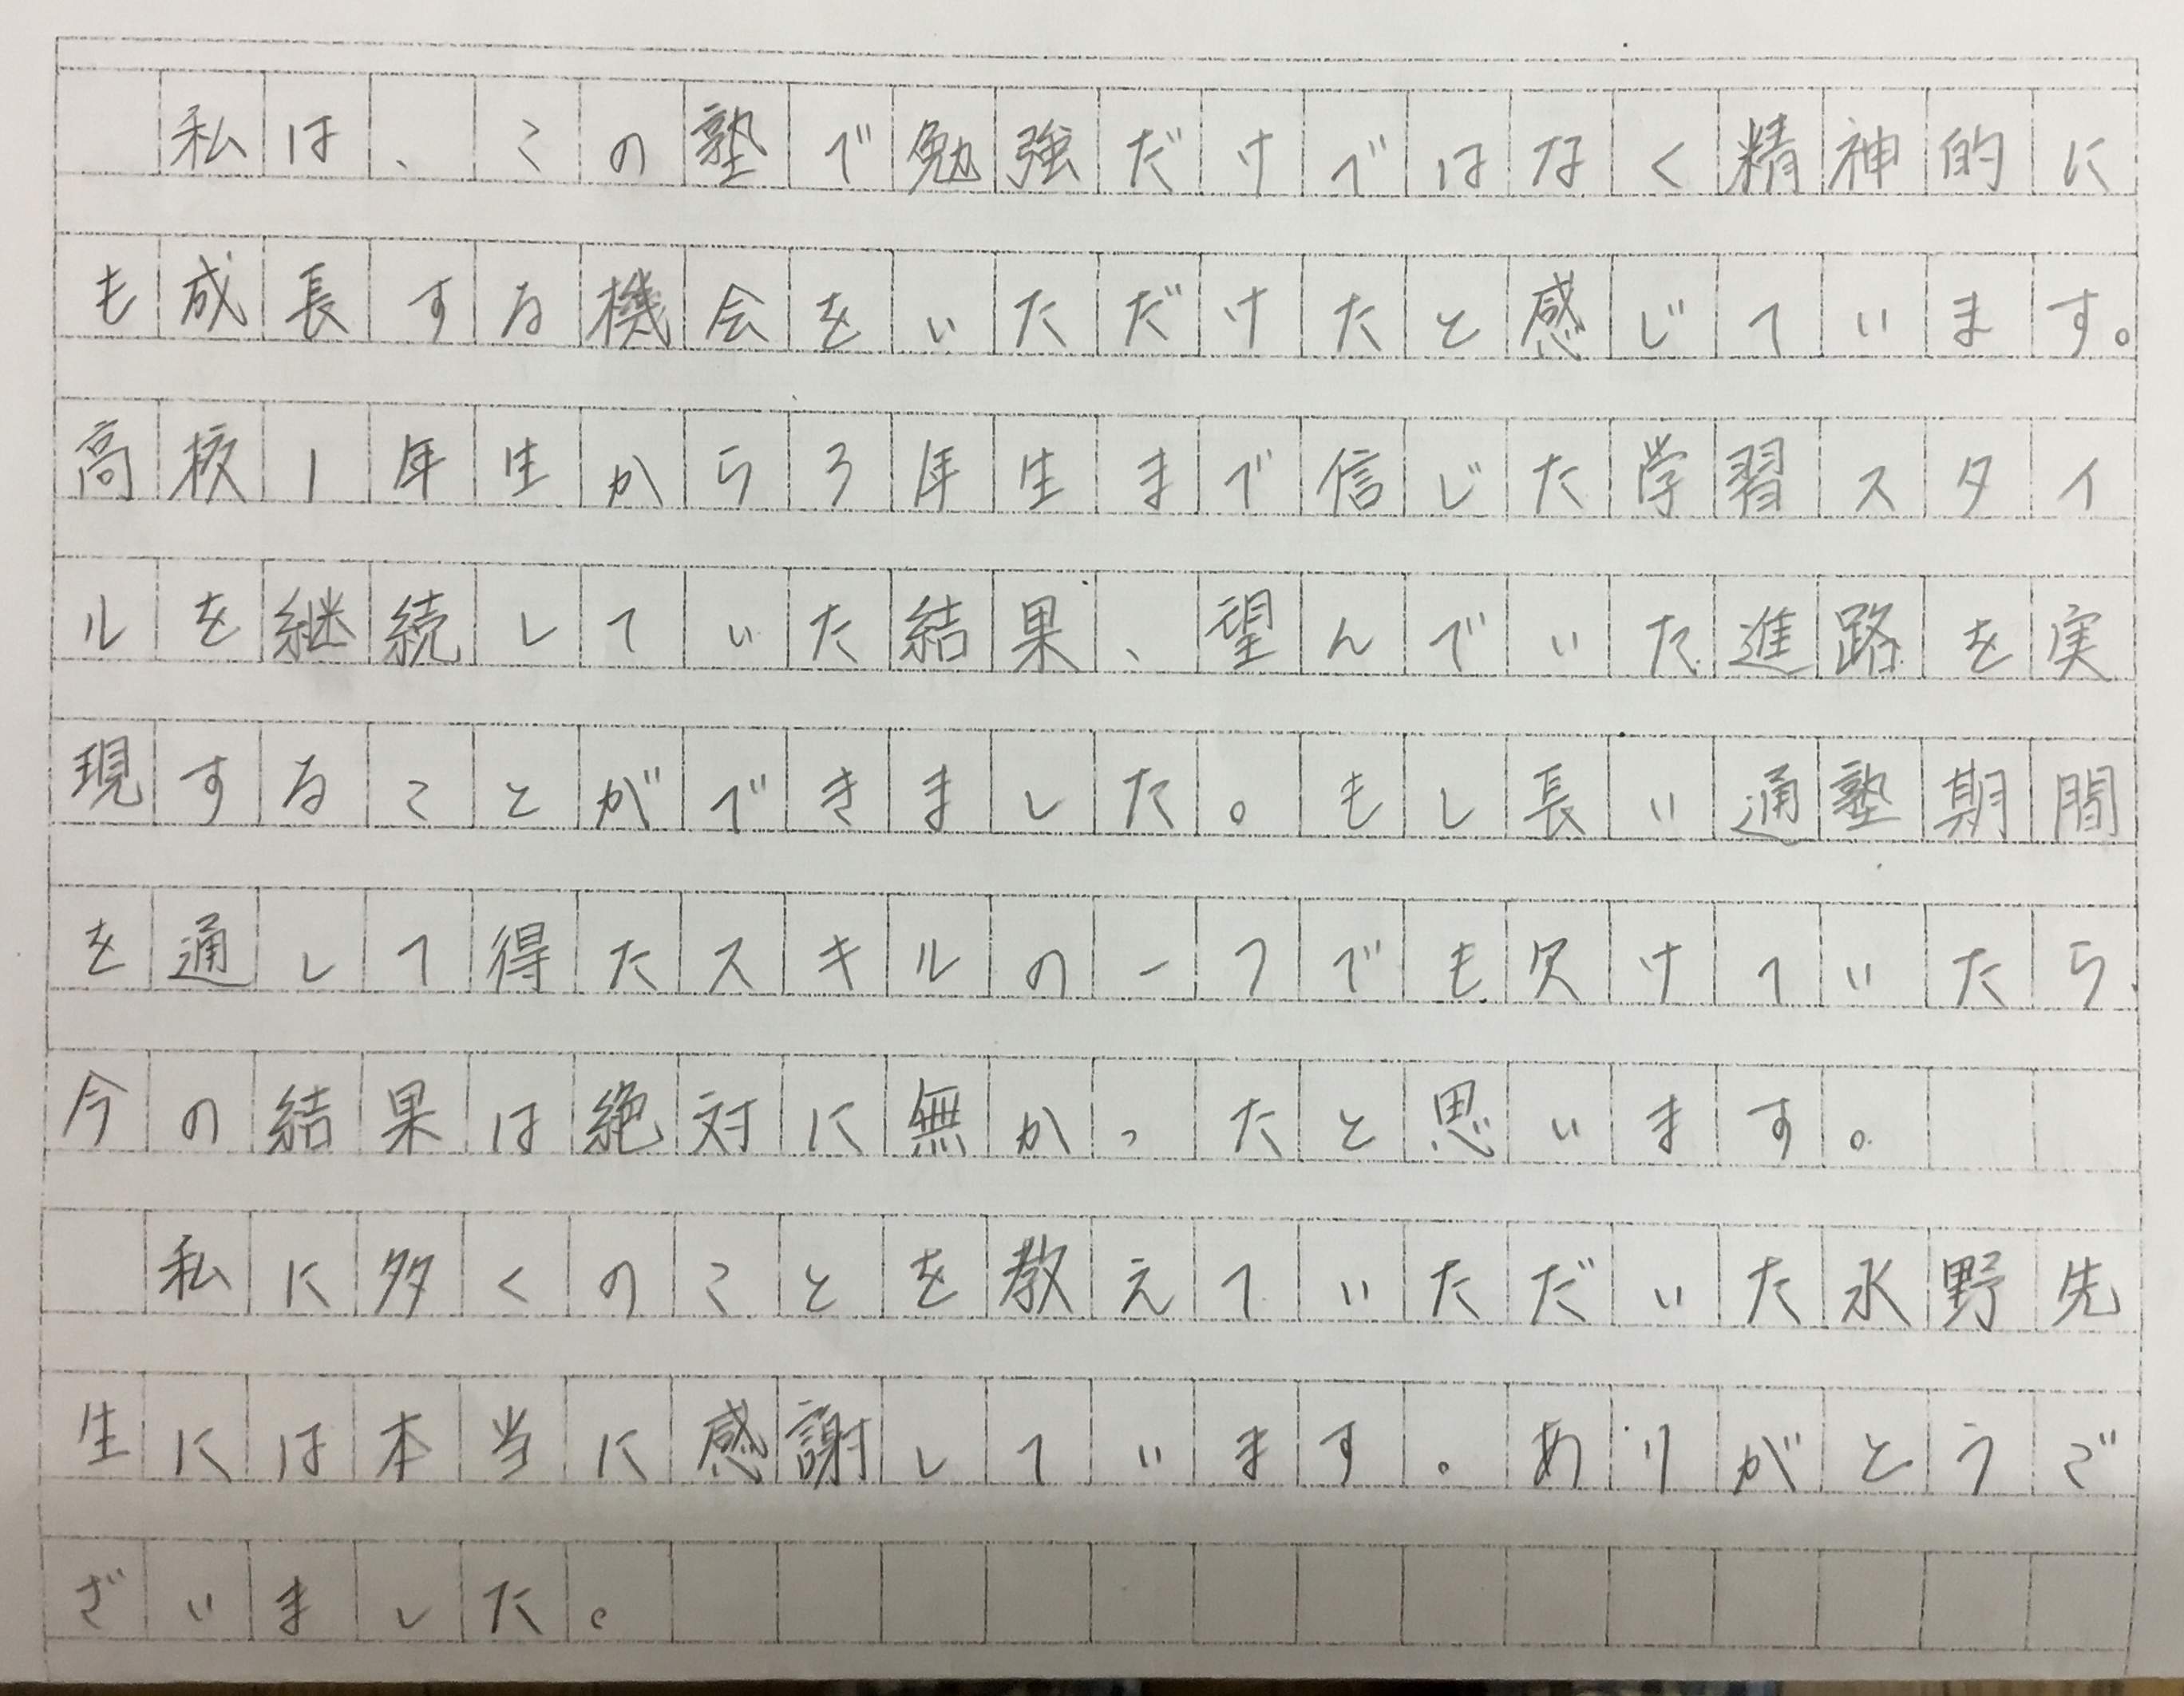 私は、この塾で勉強だけではなく精神的に
も成長する機会をいただけたと感じています。
高校1年生から3年生まで信じた学習スタイ
ルを継続していた結果、望んでいた進路を実
現することができました。もし長い通塾期間
を通して得たスキルの一つでも欠けていたら、
今の結果は絶対に無かったと思います。
私に多くのことを教えていただいた水野先
生には本当に感謝しています。ありがとうご
ざいました。